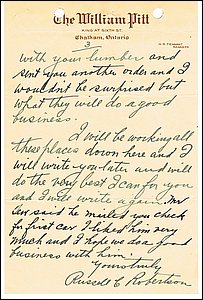 The William Pitt
KING AT SIXTH ST.
Chatham, Ontario
3
with your lumber and
sent you another order and I
wouldnt be surprised but
what they will do a good
business.
I will be working all
these places down here and I
will write you later and will
do the very best I can for you
and I will write again. Mr
said he mailed you check
for first car I liked him very
much and I hope we do a good
business with him.
Yours truly
Russell C. Robertson